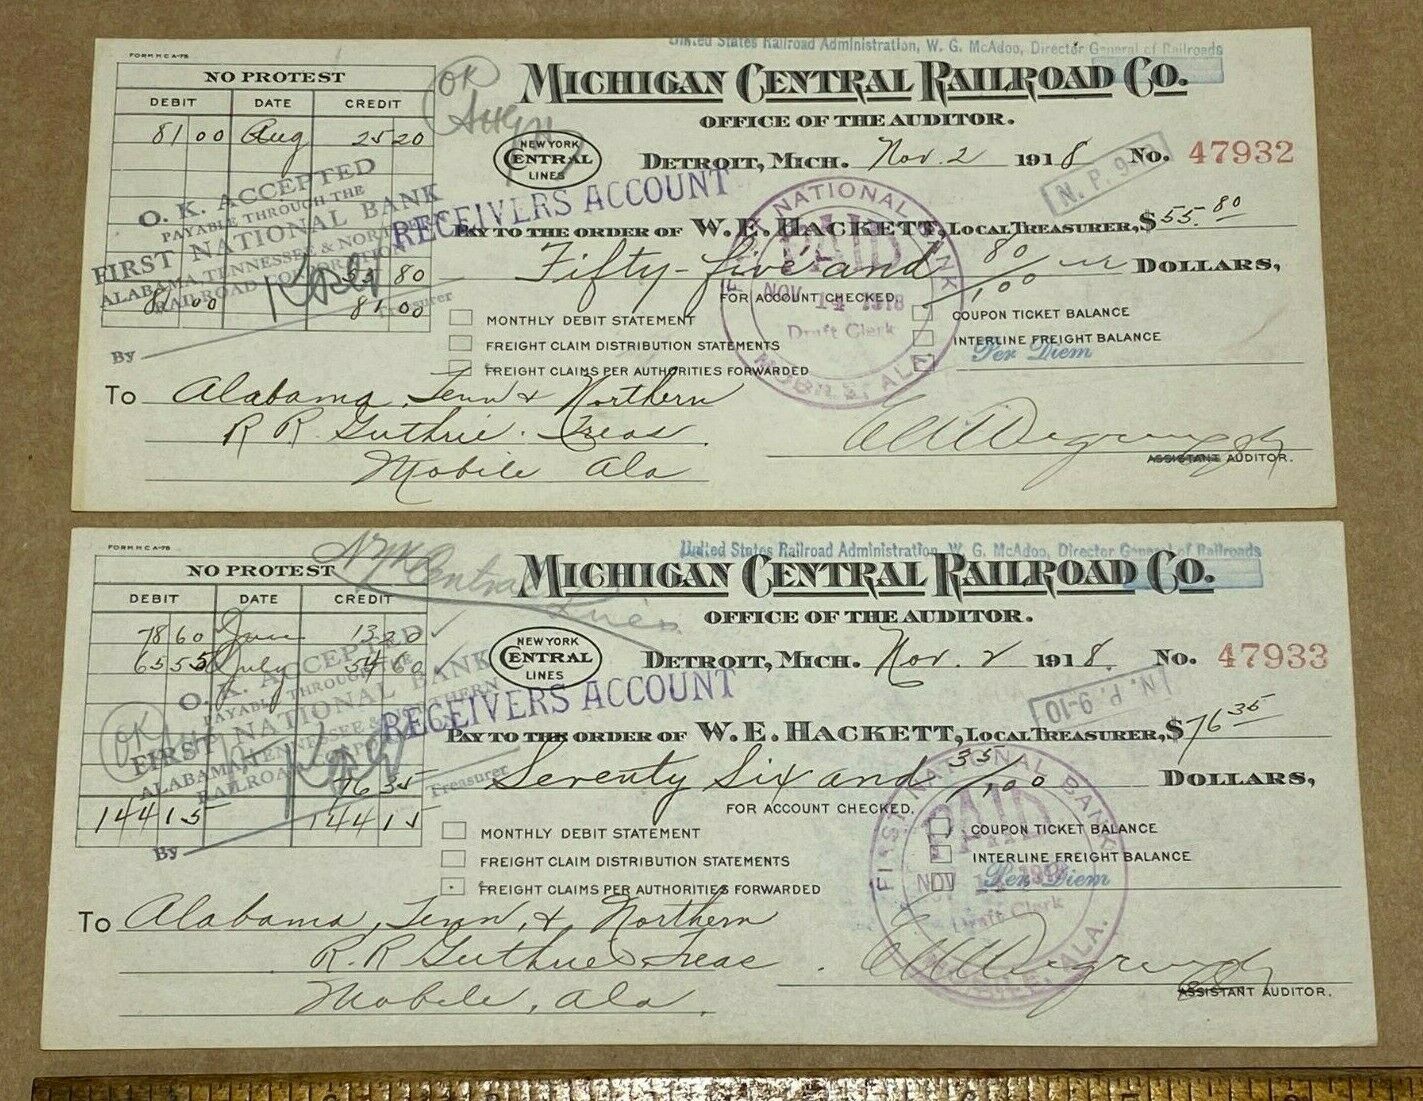 United States Railroad Administration, W. G. McAdoo, Director General of Railroads
FORM M C A-75
NO PROTEST
DEBIT DATE CREDIT
81 00 Aug 25 20
55 80
81 00 81 00
OK
MICHIGAN CENTRAL RAILROAD CO.
OFFICE OF THE AUDITOR.
NEW YORK
CENTRAL
LINES
DETROIT, MICH. Nov. 2 1918 No. 47932
N. P. 9-10
RECEIVERS ACCOUNT
PAY TO THE ORDER OF W. E. HACKETT, LOCAL TREASURER, $55.80
Fifty-five and 80/100 DOLLARS,
O. K. ACCEPTED
PAYABLE THROUGH THE
FIRST NATIONAL BANK
ALABAMA, TENNESSEE & NORTHERN
RAILROAD CORPORATION
Treasurer
By
FIRST NATIONAL BANK
PAID
NOV 14 1918
Draft Clerk
MOBILE, ALA.
FOR ACCOUNT CHECKED.
MONTHLY DEBIT STATEMENT
FREIGHT CLAIM DISTRIBUTION STATEMENTS
FREIGHT CLAIMS PER AUTHORITIES FORWARDED
COUPON TICKET BALANCE
INTERLINE FREIGHT BALANCE
Per Diem
To Alabama, Tenn & Northern
R R Guthrie. Treas.
Mobile Ala
ASSISTANT AUDITOR.
United States Railroad Administration, W. G. McAdoo, Director General of Railroads
FORM M C A-75
NO PROTEST
DEBIT DATE CREDIT
78 60 June 13 20
65 55 July 54 60
76 35
144 15 144 15
OK
Central Lines
MICHIGAN CENTRAL RAILROAD CO.
OFFICE OF THE AUDITOR.
NEW YORK
CENTRAL
LINES
DETROIT, MICH. Nov. 2 1918. No. 47933
N. P. 9-10
RECEIVERS ACCOUNT
PAY TO THE ORDER OF W. E. HACKETT, LOCAL TREASURER, $76.35
Seventy Six and 35/100 DOLLARS,
O. K. ACCEPTED
PAYABLE THROUGH THE
FIRST NATIONAL BANK
ALABAMA, TENNESSEE & NORTHERN
RAILROAD CORPORATION
Treasurer
By
FIRST NATIONAL BANK
PAID
NOV 14 1918
Draft Clerk
MOBILE, ALA.
FOR ACCOUNT CHECKED.
MONTHLY DEBIT STATEMENT
FREIGHT CLAIM DISTRIBUTION STATEMENTS
FREIGHT CLAIMS PER AUTHORITIES FORWARDED
COUPON TICKET BALANCE
INTERLINE FREIGHT BALANCE
Per Diem
To Alabama, Tenn, & Northern
R. R Guthrie Treas.
Mobile, Ala.
ASSISTANT AUDITOR.